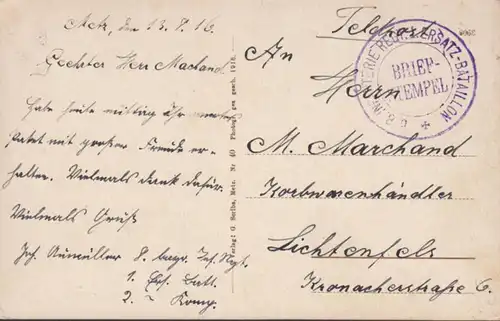 Metz, den 13.8.16.
Geehrter Herr Machand
Habe heute mittag Ihr
Paket mit großer Freude er-
halten. Vielmals dank dafür.
Vielmals Gruß
Joh. Aumüller 8. bayr. Inf. Rgt.
1. Ers. Batl.
2. " Komp.
Verlag: G. Seribe, Metz. Nr. 40 Photogr. gen gesch. 1916.
Feldpost
An
Herrn
M. Marchand
Korbwarenhändler
Lichtenfels
Kronacherstraße 6.
INFANTERIE REGT. ERSATZ-BATAILLON
BRIEF-
STEMPEL